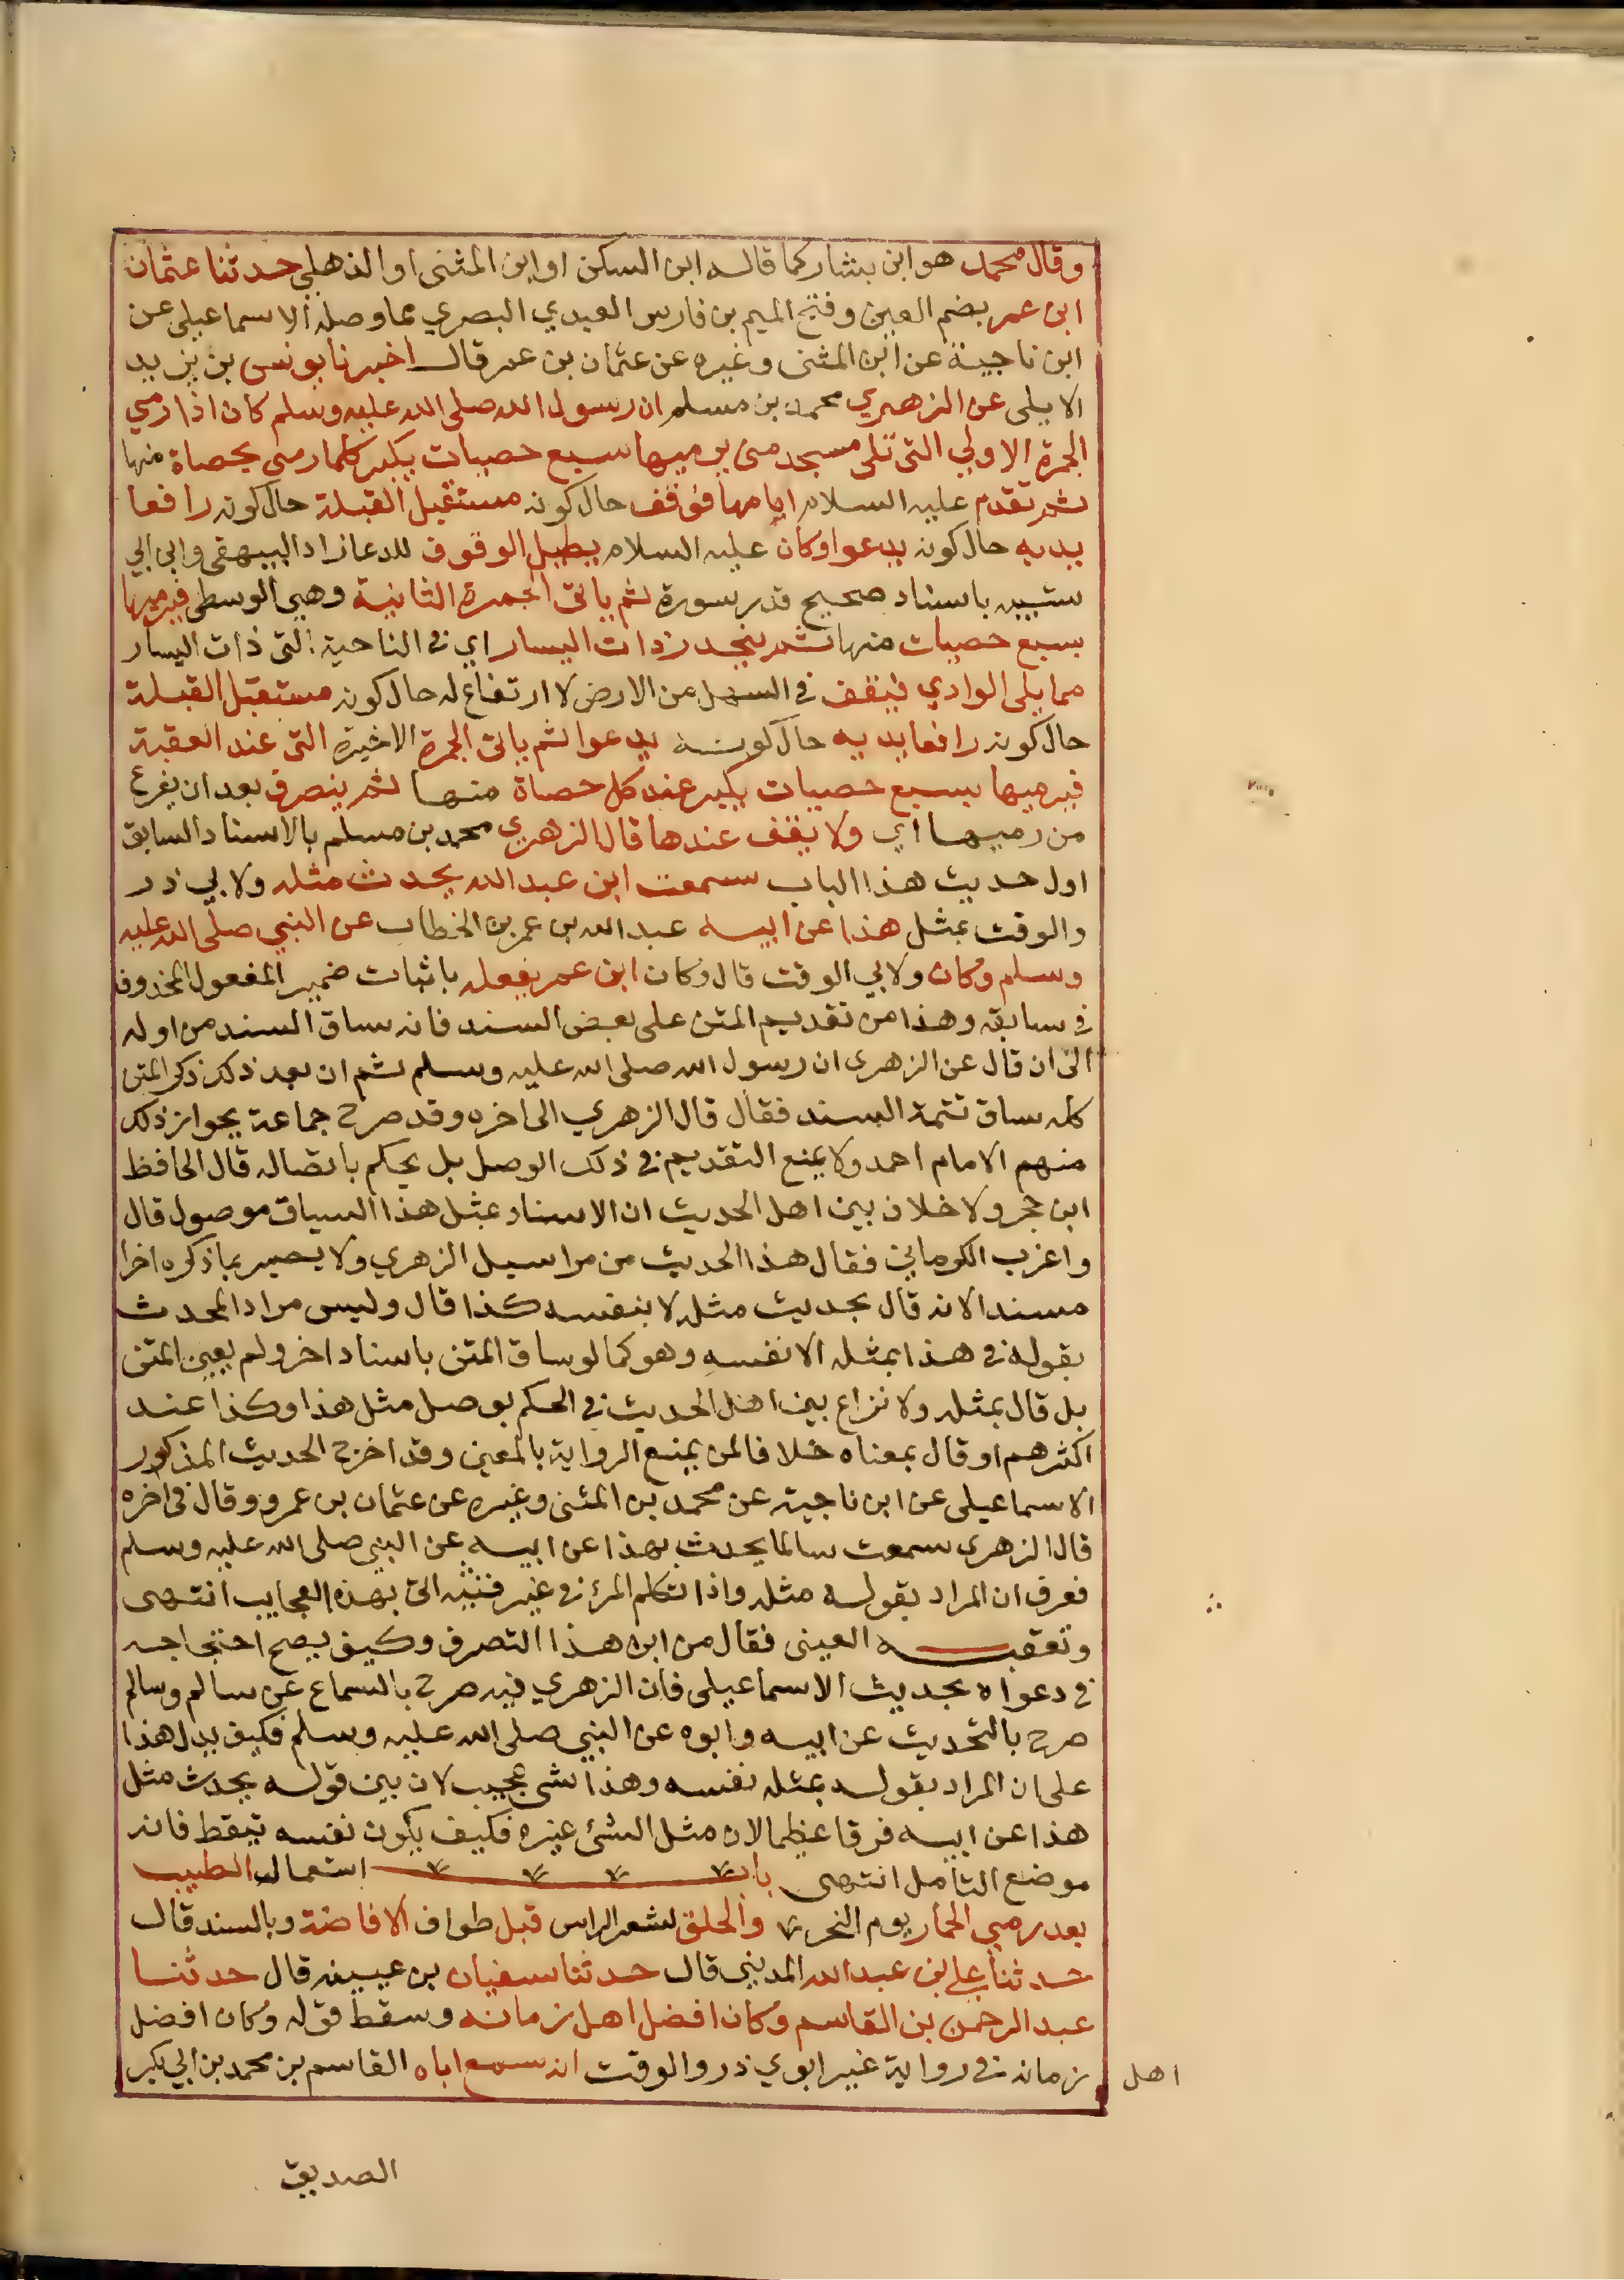 وقال محمد هو ابن بشار كما قاله ابن السكن او ابن المثنى او الذهلي حدثنا عثمان
ابن عمر بضم العين وفتح الميم بن فارس العبدي البصري مما وصله الاسماعيلي عن
ابن ناجية عن ابن المثنى وغيره عن عثمان بن عمر قال اخبرنا يونس بن يزيد
الايلي عن الزهري محمد بن مسلم ان رسول الله صلى الله عليه وسلم كان اذا رمي
الجمرة الاولي التي تلي مسجد منى يرميها سبع حصيات يكبر كلما رمى بحصاة منها
ثم تقدم عليه السلام امامها فوقف حال كونه مستقبل القبلة حال كونه رافعا
يديه حال كونه يدعوا وكان عليه السلام يطيل الوقوف للدعا زاد البيهقي وابي ابي
شيبه باسناد صحيح قدر سورة ثم ياتي الجمرة الثانية وهي الوسطى فيرميها
بسبع حصيات منها ثم ينحدر ذات اليسار اي في الناحية التي ذات اليسار
مما يلي الوادي فيقف في السهل من الارض لا ارتفاع له حال كونه مستقبل القبلة
حال كونه رافعا يديه حال كونه يدعوا ثم ياتي الجمرة الاخيرة التي عند العقبة
فيرميها بسبع حصيات يكبر عند كل حصاة منها ثم ينصرف بعد ان يفرغ
من رميها اي ولا يقف عندها قال الزهري محمد بن مسلم بالاسناد السابق
اول حديث هذا الباب سمعت ابن عبد الله يحدث مثله ولابي ذر
والوقت بمثل هذا عن ابيه عبد الله بن عمر بن الخطاب عن النبي صلى الله عليه
وسلم وكان ولابي الوقت قال وكان ابن عمر يفعله باثبات ضمير المفعول المحذوف
في سابقه وهذا من تقديم المتن على بعض السند فانه ساق السند من اوله
الى ان قال عن الزهرى ان رسول الله صلى الله عليه وسلم ثم ان بعد ذكد ذكر المتن
كله ساق تتمة السند فقال قال الزهري الى اخره وقد صرح جماعة بجواز ذلك
منهم الامام احمد ولا يمنع التقديم في ذلك الوصل بل يحكم باتصاله قال الحافظ
ابن حجر ولا خلاف بين اهل الحديث ان الاسناد بمثل هذا السياق موصول قال
واغرب الكرماني فقال هذا الحديث من مراسيل الزهري ولا يصير بما ذكره اخرا
مسندا لانه قال بحديث مثله لا بنفسه كذا قال وليس مراد المحدث
بقوله في هذا بمثله الا نفسه وهو كما لو ساق المتن باسناد اخر ولم يعين المتن
بل قال بمثله ولا نزاع بين اهل الحديث في الحكم بوصل مثل هذا وكذا عند
اكثرهم او قال بمعناه خلافا لمن يمنع الرواية بالمعين وقد اخرج الحديث المذكور
الاسماعيلي عن ابن ناجية عن محمد بن المثنى وغيره عن عثمان بن عمرو وقال في اخره
قال الزهري سمعت سالما يحدث بهذا عن ابيه عن النبي صلى الله عليه وسلم
فعرف ان المراد بقوله مثله واذا تكلم المرء في غير فنه الى بهذه العجايب انتهى
وتعقبه العينى فقال من اين هذا التصرف وكيف يصح احتجاجه
في دعواه بحديث الاسماعيلي فان الزهري فيه صرح بالسماع عن سالم وسالم
صرح بالتحديث عن ابيه وابوه عن النبي صلى الله عليه وسلم فكيف يدل هذا
على ان المراد بقوله بمثله نفسه وهذا شى عجيب لان بين قوله يحدث مثل
هذا عن ابيه فرقا عظيما لان مثل الشئ غيره فكيف يكون نفسه تيقظ فانه
موضع التامل انتهى باب استعمال الطيب
بعد رمي الجمار يوم النحر والحلق لشعر الراس قبل طواف الافاضة وبالسند قال
حدثنا علي بن عبد الله المديني قال حدثنا سفيان بن عيينه قال حدثنا
عبد الرحمن بن القاسم وكان افضل اهل زمانه وسقط قوله وكان افضل
اهل زمانه في رواية غير ابوي ذر والوقت انه سمع اباه القاسم بن محمد بن ابي بكر
الصديق